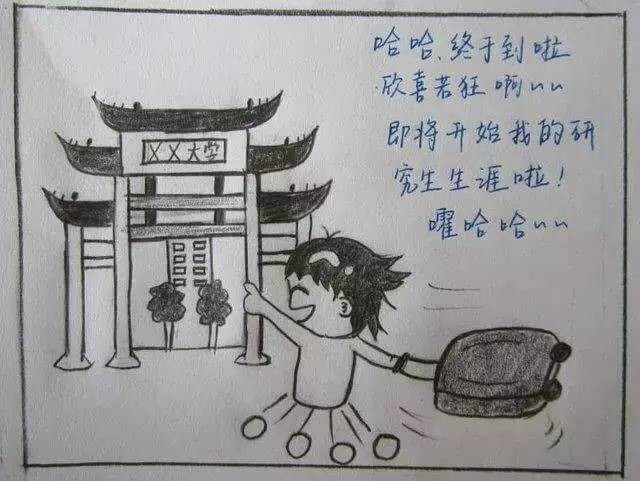 XX大学
哈哈、终于到啦
欣喜若狂啊~~
即将开始我的研
究生生涯啦！
嚯哈哈~~